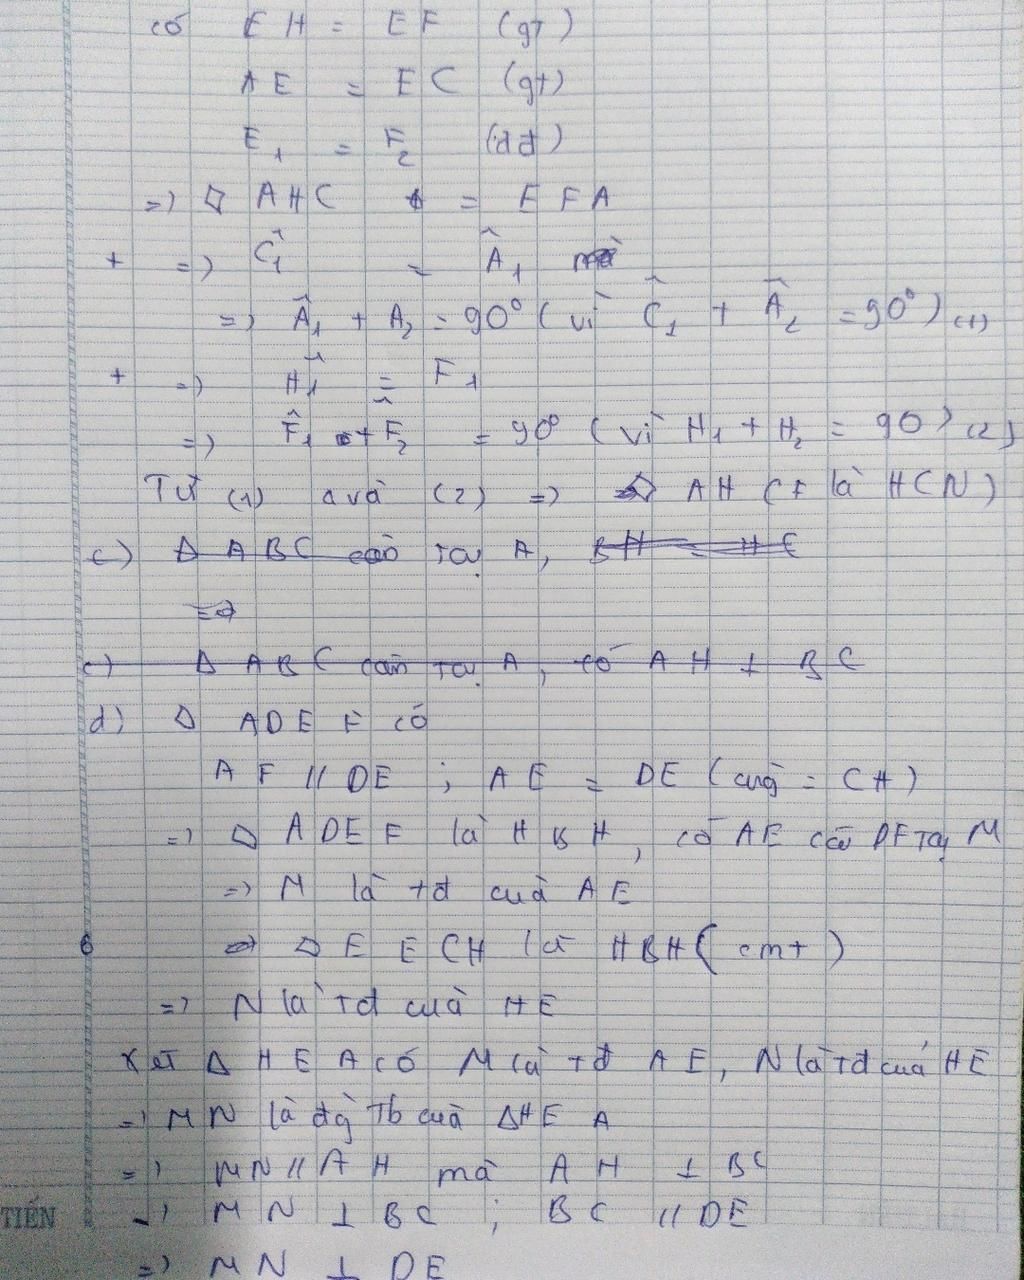 có EH = EF (gt)
AE = EC (gt)
E₁ = F₂ (đđ)
=> ▱ AHC = EFA
+ => Ĉ₁ = Â₁ mà
=> Â₁ + A₂ = 90° (vì Ĉ₁ + Â₂ = 90°) (1)
+ => Ĥ₁ = F₁
=> F̂₁ + F̂₂ = 90° (vì H₁ + H₂ = 90) (2)
Từ (1) avà (2) => AHCF là HCN)
c) Δ ABC cân tại A, BH = HC
=>
c) Δ ABC cân tại A, có AH ⊥ BC
d) ▱ ADEF có
AF // DE ; AE = DE (cùng = CH)
=> ▱ ADEF là HBH, có AE cắt DF tại M
=> M là tđ cuả AE
=> ▱ E ECH là HBH (cmt)
=> N là tđ cuả HE
Xét Δ HEA có M là tđ AE, N là tđ cuả HE
=> MN là đg Tb cuả ΔHEA
=> MN // AH mà AH ⊥ BC
=> MN ⊥ BC ; BC // DE
TIẾN
=> MN ⊥ DE